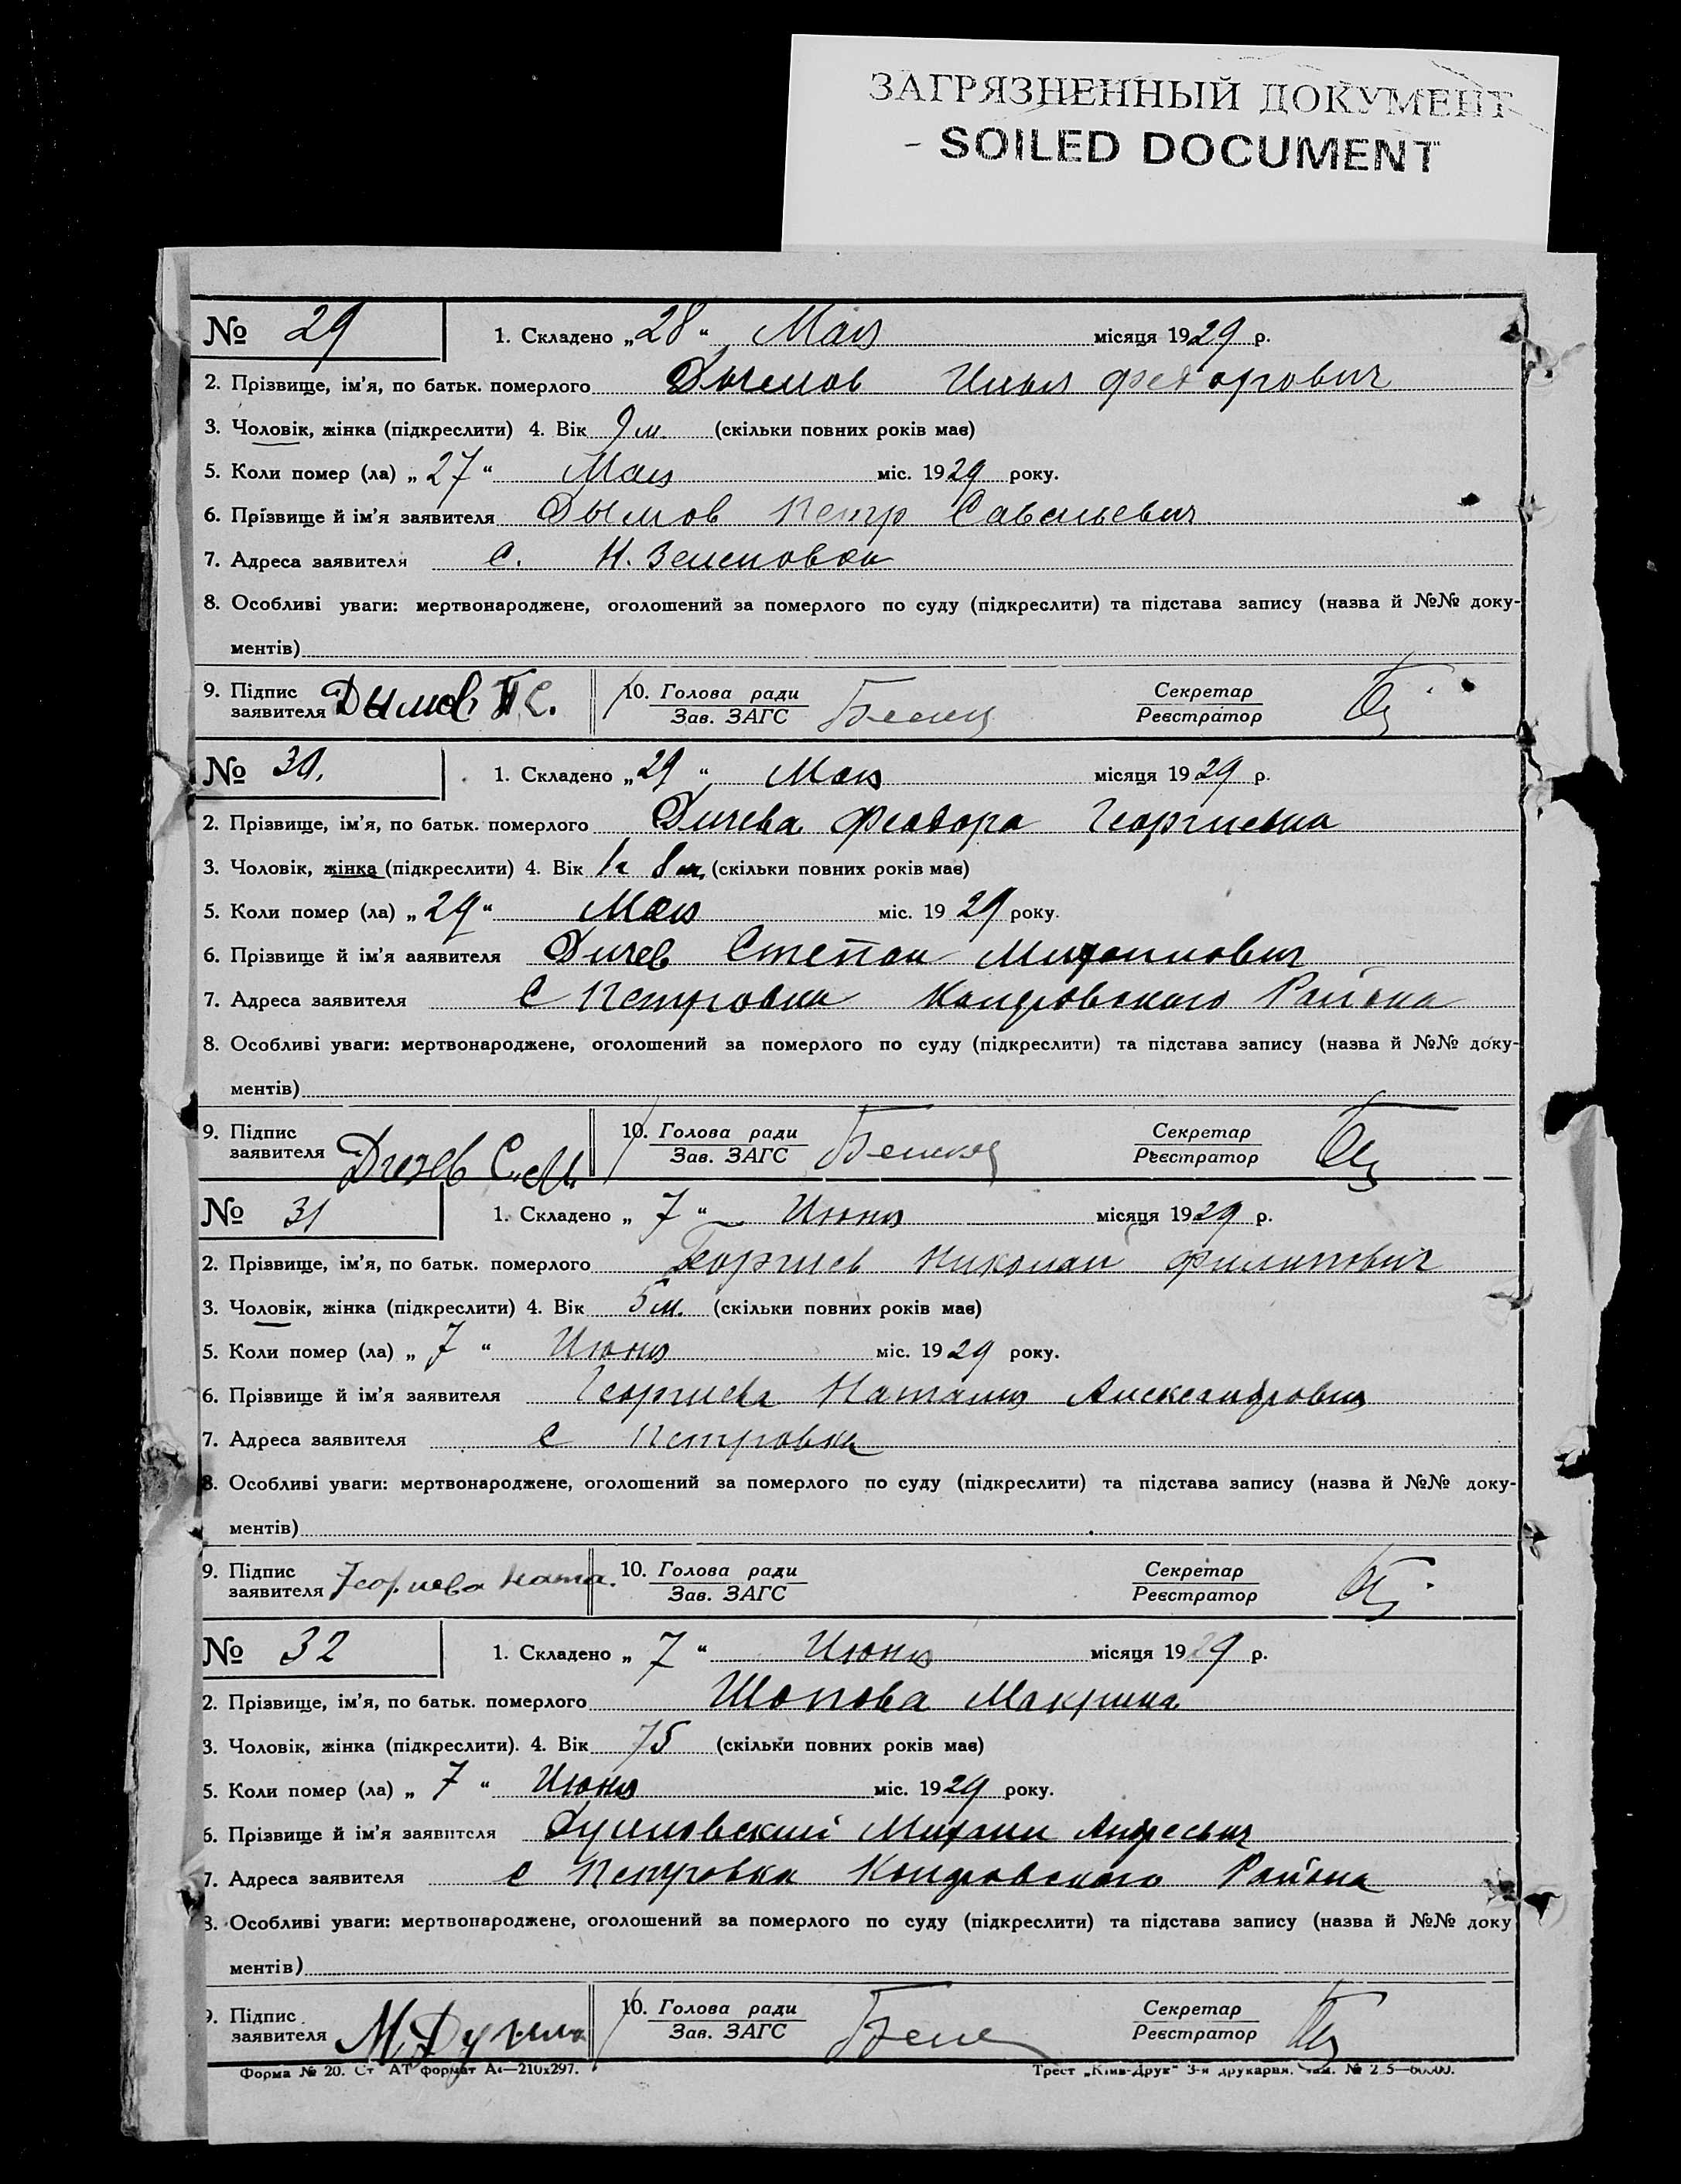 ЗАГРЯЗНЕННЫЙ ДОКУМЕНТ
- SOILED DOCUMENT
№ 29 1. Складено „28“ Мая місяця 1929 р.
2. Прізвище, ім'я, по батьк. померлого Илья Федорович
3. Чоловік, жінка (підкреслити) 4. Вік 9 м. (скільки повних років має)
5. Коли помер (ла) „27“ Мая міс. 1929 року.
6. Прізвище й ім'я заявителя Дымов Петр Савельевич
7. Адреса заявителя С. Н. Зеленовка
8. Особливі уваги: мертвонароджене, оголошений за померлого по суду (підкреслити) та підстава запису (назва й №№ доку-
ментів)
9. Підпис заявителя Дымов П С. 10. Голова ради Зав. ЗАГС Секретар Реєстратор
№ 30. 1. Складено „29“ Мая місяця 1929 р.
2. Прізвище, ім'я, по батьк. померлого Дичева Феодора Георгиевна
3. Чоловік, жінка (підкреслити) 4. Вік 1 г 8 м. (скільки повних років має)
5. Коли помер (ла) „29“ Мая міс. 1929 року.
6. Прізвище й ім'я заявителя Дичев Степан Михаилович
7. Адреса заявителя С Петровка Района
8. Особливі уваги: мертвонароджене, оголошений за померлого по суду (підкреслити) та підстава запису (назва й №№ доку-
ментів)
9. Підпис заявителя Дичев С. М. 10. Голова ради Зав. ЗАГС Секретар Реєстратор
№ 31 1. Складено „7“ Июня місяця 1929 р.
2. Прізвище, ім'я, по батьк. померлого Георгиев Николай Филипович
3. Чоловік, жінка (підкреслити) 4. Вік 5 м. (скільки повних років має)
5. Коли помер (ла) „7“ Июня міс. 1929 року.
6. Прізвище й ім'я заявителя Георгиева Наталия
7. Адреса заявителя С Петровка
8. Особливі уваги: мертвонароджене, оголошений за померлого по суду (підкреслити) та підстава запису (назва й №№ доку-
ментів)
9. Підпис заявителя Ната. 10. Голова ради Зав. ЗАГС Секретар Реєстратор
№ 32 1. Складено „7“ Июня місяця 1929 р.
2. Прізвище, ім'я, по батьк. померлого Шопова Макрина
3. Чоловік, жінка (підкреслити). 4. Вік 75 (скільки повних років має)
5. Коли помер (ла) „7“ Июня міс. 1929 року.
6. Прізвище й ім'я заявителя Михаил Андреевич
7. Адреса заявителя С Петровка Района
8. Особливі уваги: мертвонароджене, оголошений за померлого по суду (підкреслити) та підстава запису (назва й №№ доку
ментів)
9. Підпис заявителя 10. Голова ради Зав. ЗАГС Секретар Реєстратор
Форма № 20. Ст АТ формат А4—210х297. Трест „Київ-Друк“ 3-я друкарня.